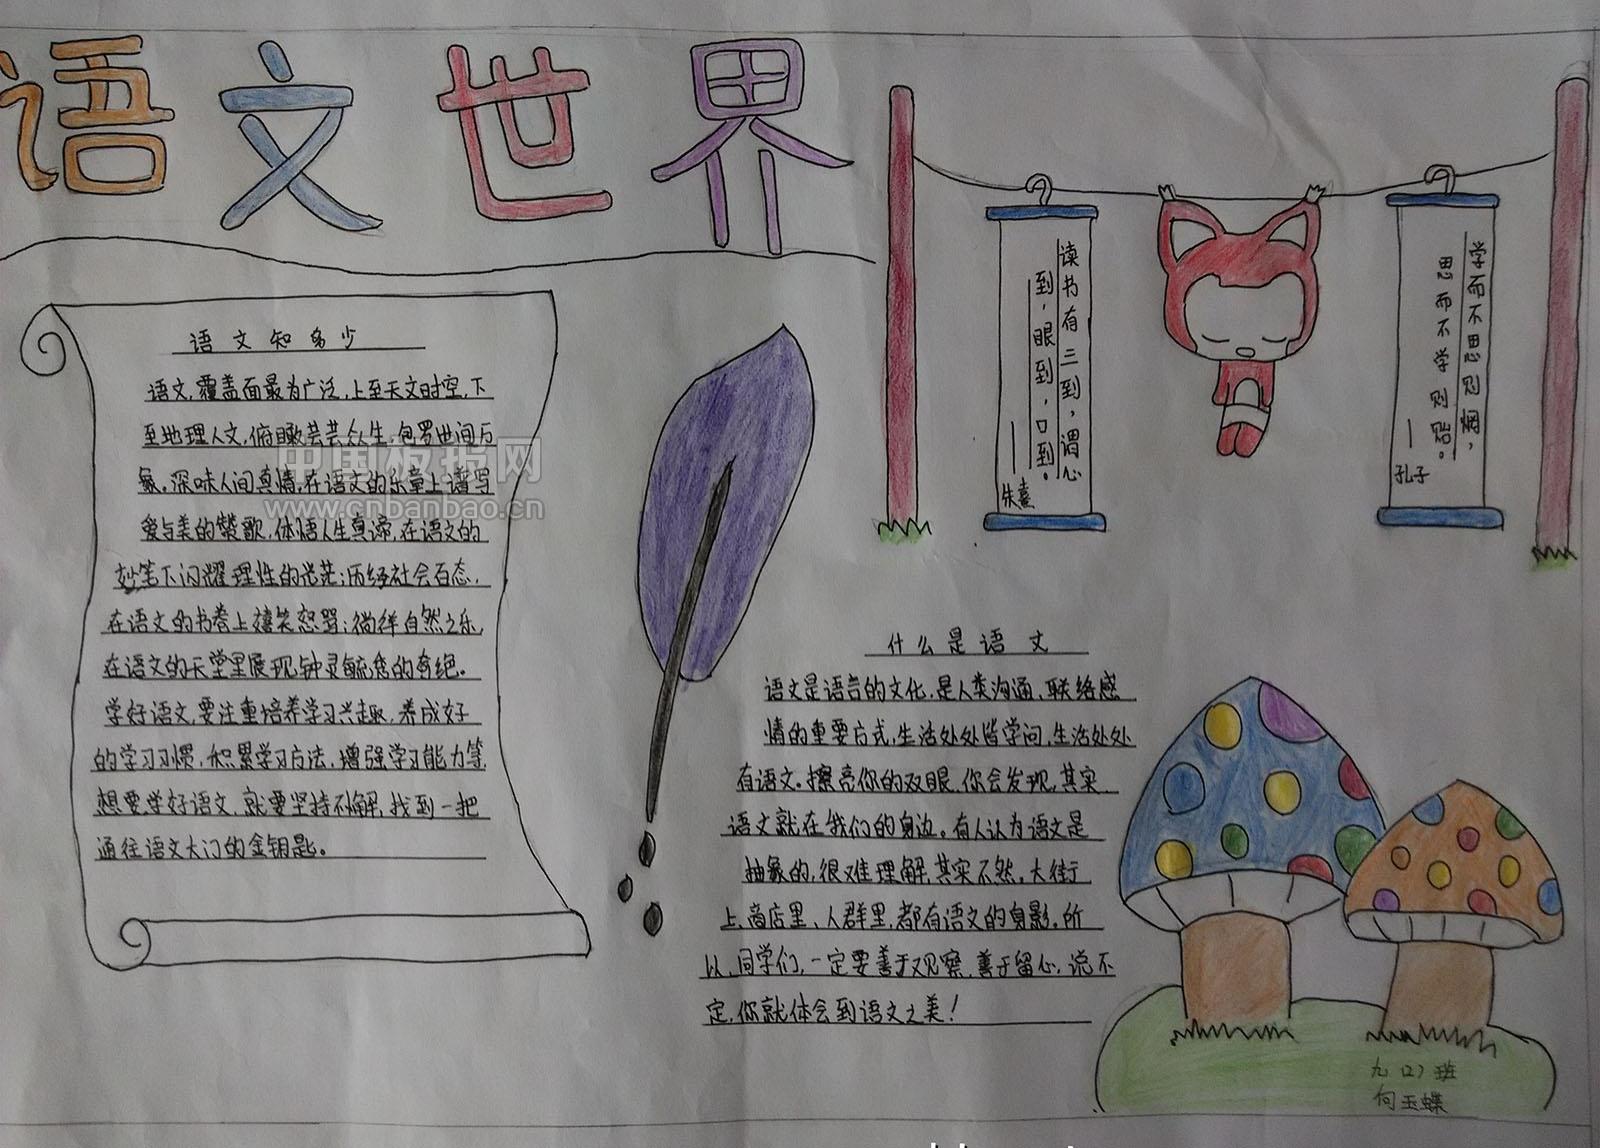 语文世界
语文知多少
语文,覆盖面最为广泛,上至天文时空,下
至地理人文,俯瞰芸芸众生,包罗世间万
象。深味人间真情,在语文的乐章上谱写
爱与美的赞歌,体悟人生真谛,在语文的
妙笔下闪耀理性的光芒;历经社会百态,
在语文的书卷上嬉笑怒骂;徜徉自然之乐,
在语文的天堂里展现钟灵毓秀的奇绝。
学好语文,要注重培养学习兴趣,养成好
的学习习惯,积累学习方法,增强学习能力等
想要学好语文,就要坚持不解,找到一把
通往语文大门的金钥匙。
读书有三到,谓心
到,眼到,口到。
——朱熹
学而不思则罔,
思而不学则殆。
——孔子
什么是语文
语文是语言的文化,是人类沟通、联络感
情的重要方式,生活处处皆学问,生活处处
有语文。擦亮你的双眼,你会发现,其实
语文就在我们的身边。有人认为语文是
抽象的,很难理解,其实不然。大街
上、商店里、人群里,都有语文的身影。所
以,同学们,一定要善于观察,善于留心,说不
定,你就体会到语文之美!
九(2)班
何玉蝶
中国板报网
www.cnbanbao.cn